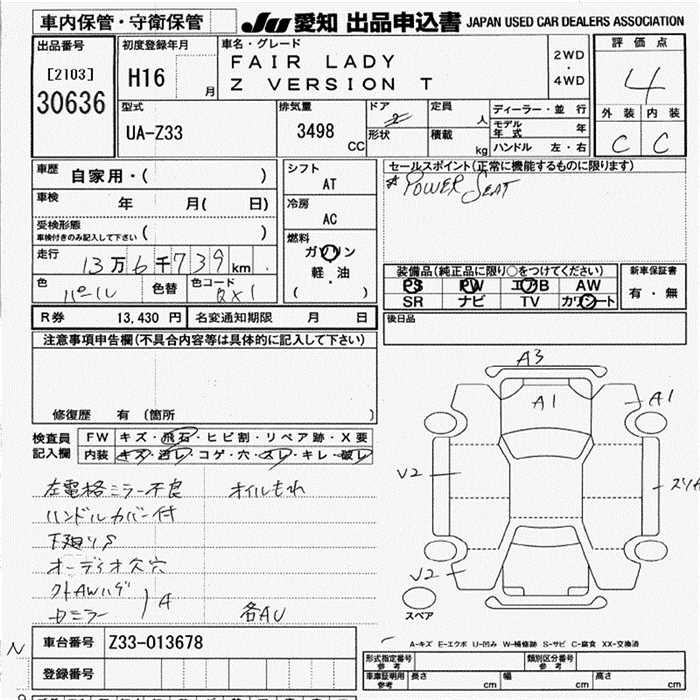 車内保管・守衛保管
JU 愛知 出品申込書 JAPAN USED CAR DEALERS ASSOCIATION
出品番号
[2103]
30636
初度登録年月
H16 月
車名・グレード
FAIR LADY
Z VERSION T
2WD
・
4WD
評価点
4
外装 内装
C C
型式
UA-Z33
排気量
3498 CC
ドア
2
形状
定員 人
積載 kg
ディーラー・並行
モデル年式 年
ハンドル 左・右
車歴
自家用・( )
車検 年 月( 日)
受検形態
車検付きのみ記入して下さい ( )
走行
13万6千739km
色
パール
色替
色コード
QX1
シフト
AT
冷房
AC
燃料
ガソリン
軽・油
( )
セールスポイント(正常に機能するものに限ります)
*POWER SEAT
装備品(純正品に限り○をつけてください)
PS PW エアB AW
SR ナビ TV カワシート
新車保証書
有・無
R券 13,430 円 名変通知期限 月 日
後日品
注意事項申告欄(不具合内容等は具体的に記入して下さい)
修復歴 有 (箇所 )
検査員
記入欄
FW キズ・飛石・ヒビ割・リペア跡・X要
内装 キズ・汚レ・コゲ・穴・スレ・キレ・破レ
左電格ミラー不良 オイルもれ
ハンドルカバー付
下廻りS
オーディオ欠穴
クトAWハゲ
セミラー A
各AU
A3
A1
A1
V2
スリ
V2
スペア
A-キズ E-エクボ U-凹み W-補修跡 S-サビ C-腐食 XX-交換済
N
車台番号 Z33-013678
登録番号
形式指定番号
参考
類別区分番号
参考
車庫証明用
参考
長さ cm 幅 cm 高さ cm